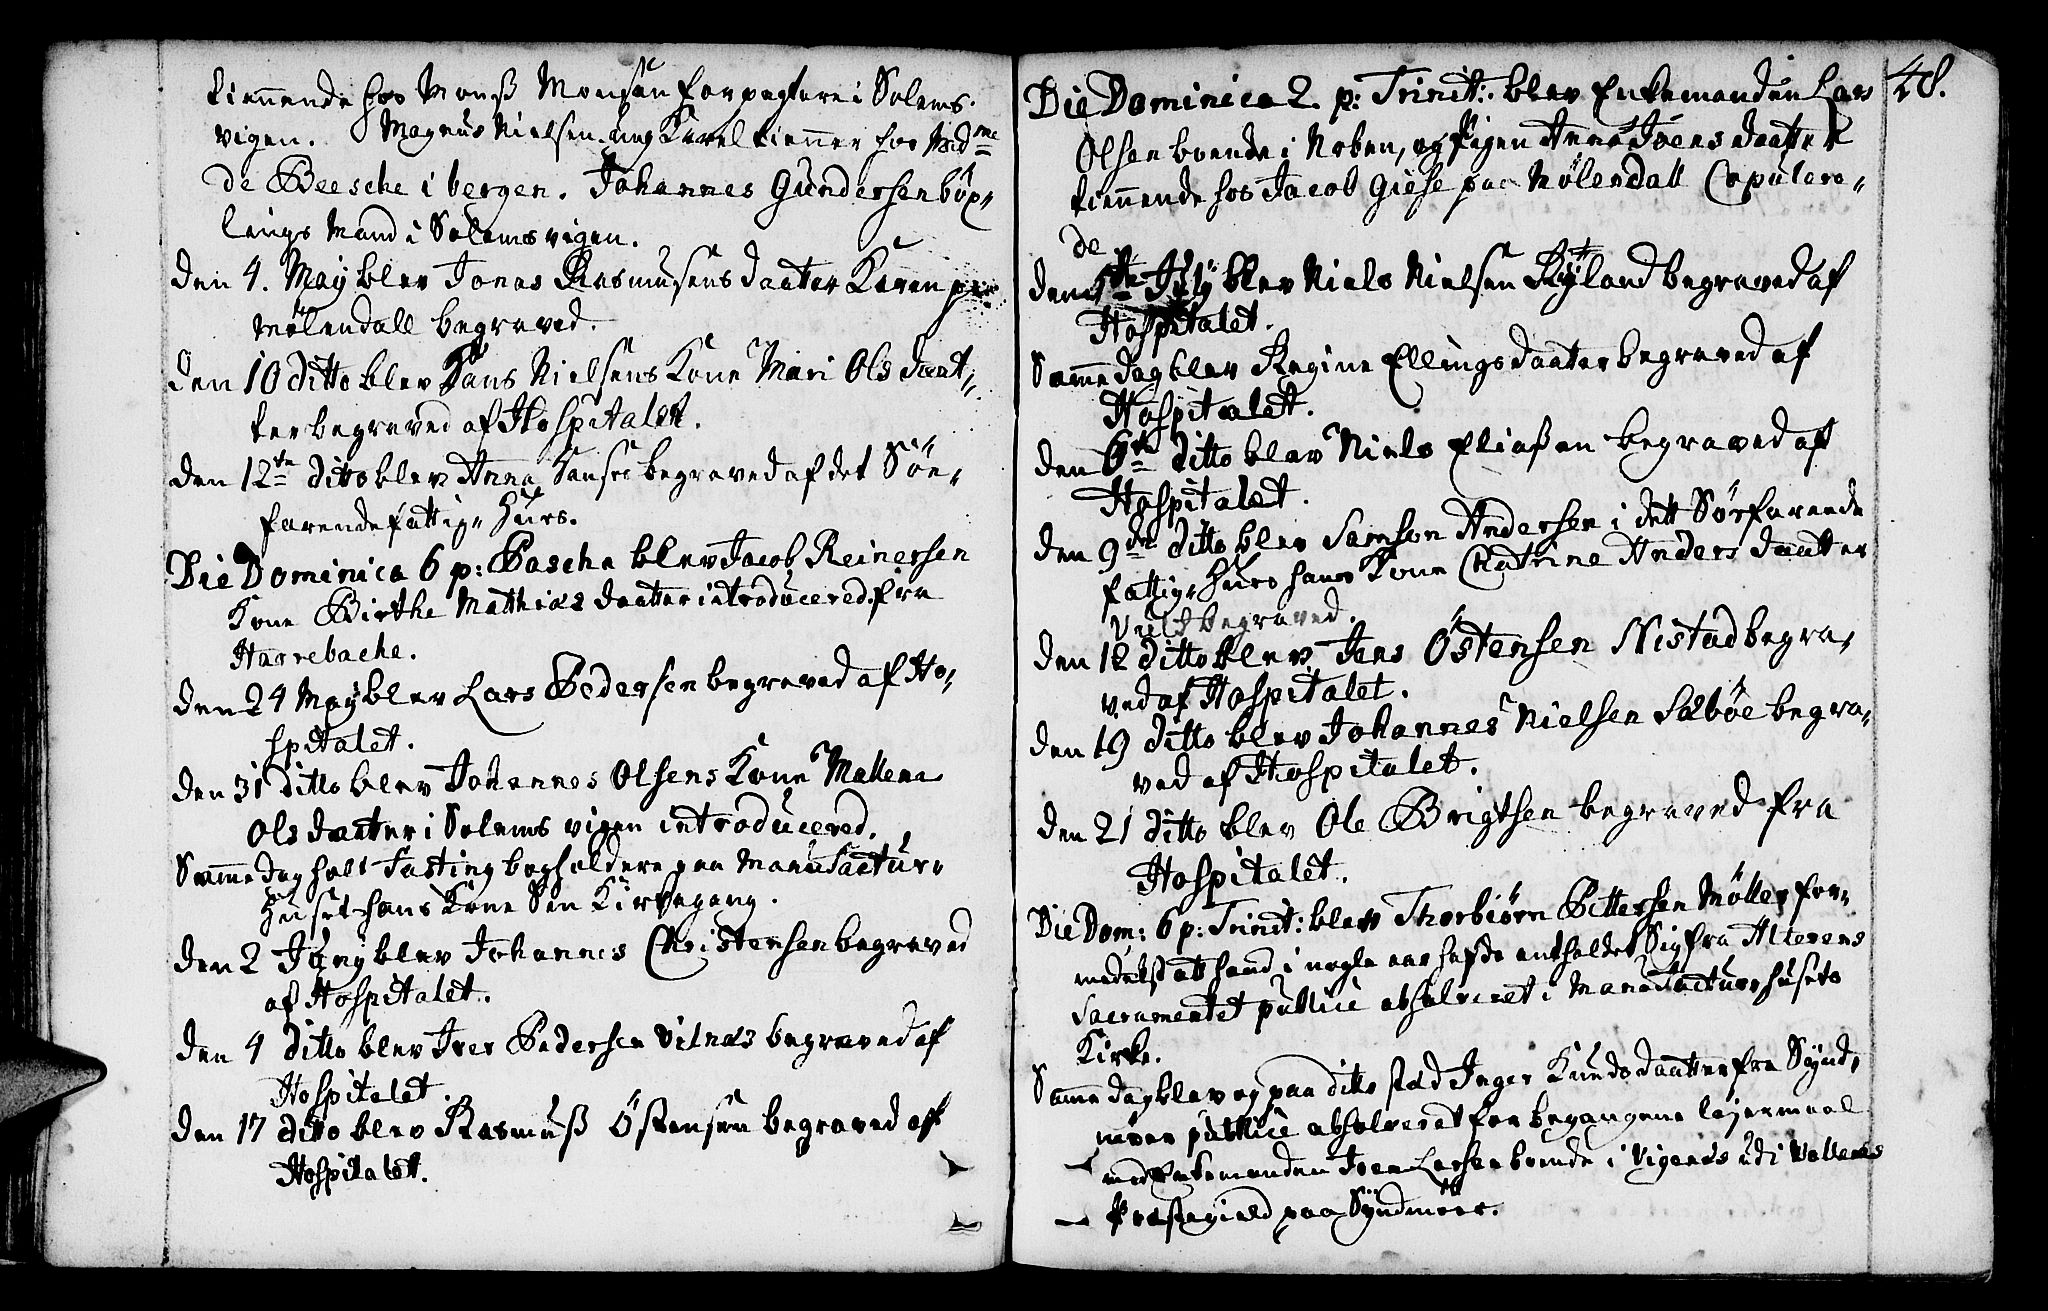 tiennende hos Monß Monsen forpagtere i Solems-
vigen. Magnus Nielsen ung Karel tienner hos Mdme
de Beesche i bergen. Johannes Gundersen böx-
lings Mand i Solemsvigen.
den 4. May blev Jonas Rasmusens daatter Karen paa
Mölendall begraved.
den 10 ditto blev Hans Nielsens Kone Mari Ols daat-
ter begraved af Hospitalet.
den 12te ditto blev Anna Hanses begraved af det Söe-
farende fattig- Huus.
Die Dominica 6 p: Pascha blev Jacob Reinersen
Kone Birthe Mathias daatter introducered fra
Harrebache.
den 24 May blev Lars Pedersen begraved af Ho-
spitalet.
den 31 ditto blev Johannes Olsens Kone Mallena
Ols daatter i Solems vigen introducered.
Samme dag holt Fasting bogholdere paa Manufactur-
Huset hans Kone Sin Kirkegang.
den 2 Juny blev Johannes Christensen begraved
af Hospitalet.
den 4 ditto blev Iver Pedersen Vilnæs begraved af
Hospitalet.
den 17 ditto blev Rasmuß Östensen begraved af
Hospitalet.
48.
Die Dominica 2. p: Trinit: blev Enkemanden Lars
Olsen boende i Noben, og Pigen Anna Joens daatter
tiennende hos Jacob Giese paa Mölendall Copulere-
de
den 5te July blev Niels Nielsen Ryland begraved af
Hospitalet.
Samme dag blev Regine Ellings daatter begraved af
Hospitalet.
den 6te ditto blev Niels Eliaßen begraved af
Hospitalet.
den 9de ditto blev Samson Andersen i dett Söefarende
fattig- Huus hans Kone Chatrine Anders daatter
begraved.
den 12 ditto blev Jens Östensen Nistad begra-
ved af Hospitalet.
den 19 ditto blev Johannes Nielsen Sæböe begra-
ved af Hospitalet.
den 21 ditto blev Ole Brigtsen begraved fra
Hospitalet.
Die Dom: 6 p: Trinit: blev Thorbiörn Pettersen Möller for-
medelst att hand i nogle aar hafde entholdet Sig fra Alterens
Sacramentet publice absolveret i Manufacturhusets
Kirke.
Samme dag blev og paa ditto stæd Inger Knuds daatter fra Synd-
möer publice absolveret for begangene lejermaal
med Enkemanden Iver Larsen boende i Vigenes udi Vollens
Præstegield paa Syndmöer.